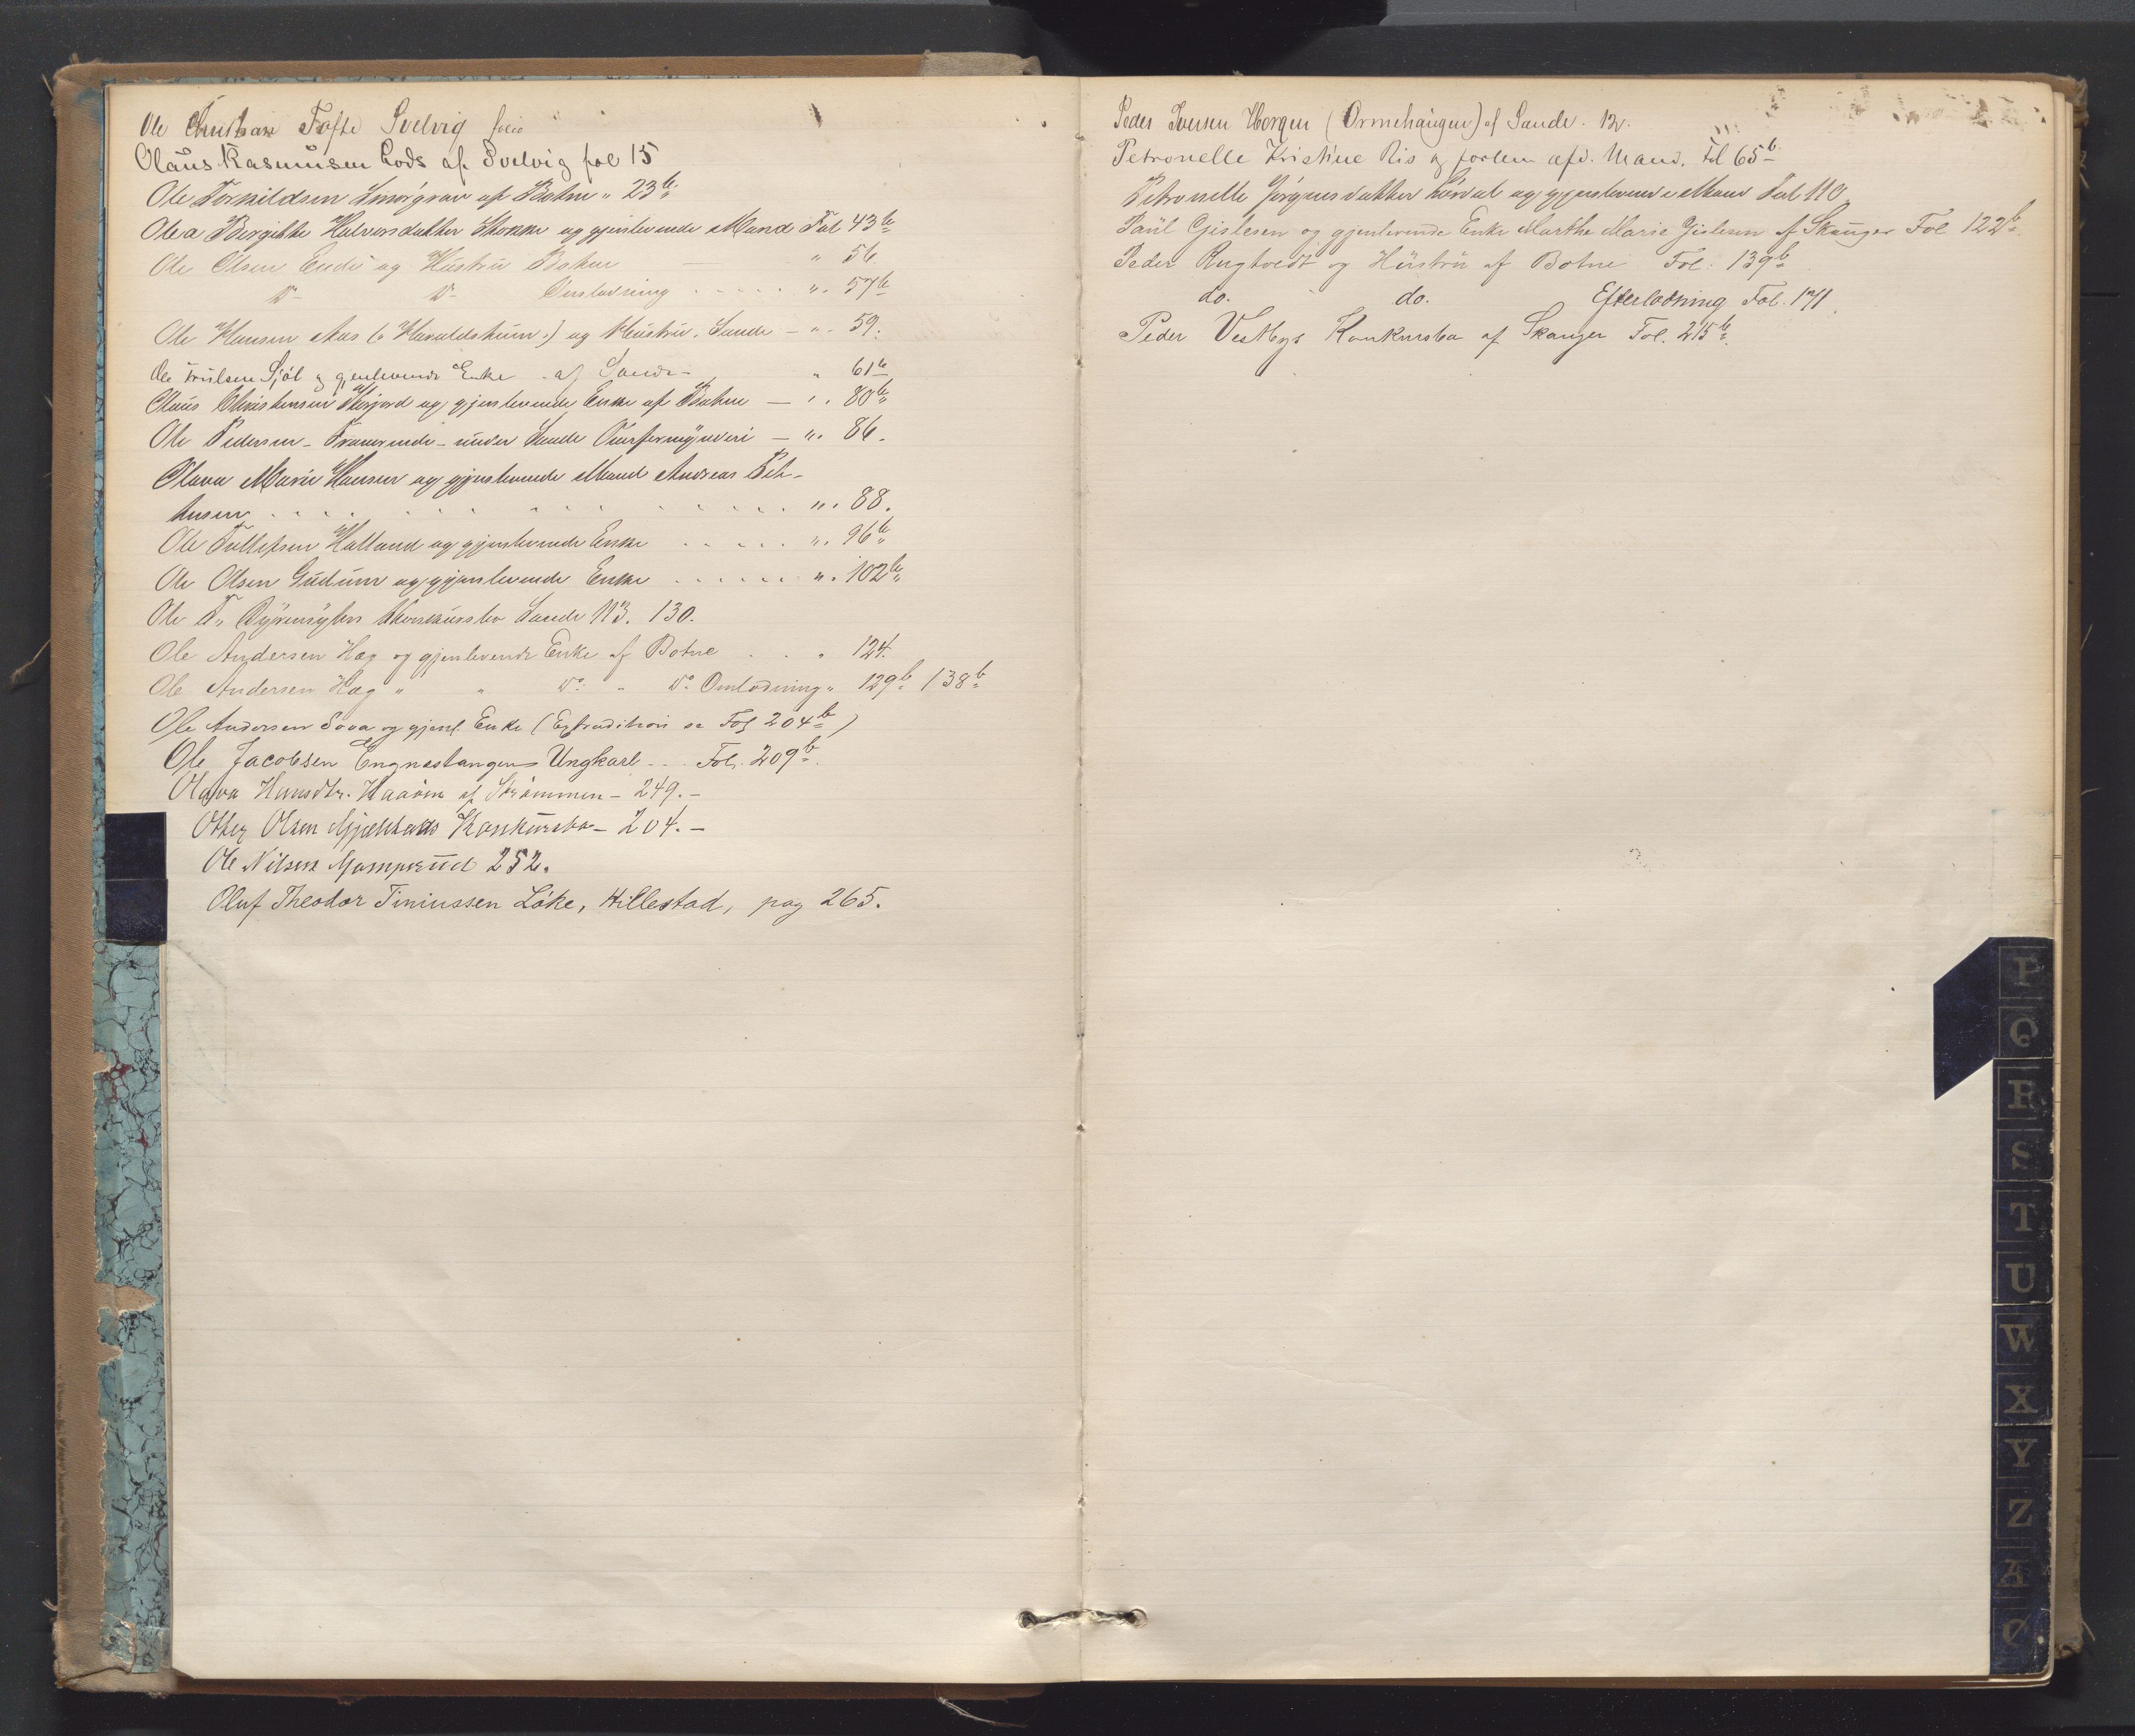 Ole Christian Tofte Svelvig folio
Olaus Rasmussen Lods af Svelvig fol 15
Ole Torkildsen Smørgrav af Botne " 23b
Olea Birgitte Halvorsdatter Skokke og gjenlevende Mand Fol 43b
Ole Olsen Ende og Hustru Botne — " 56
Do Do Omlodning . . . . . " 57b
Ole Hansen Aas (: Haraldstum :) og Hustru. Sande — " 59.
Ole Trulsen Sjøl og gjenlevende Enke af Sande " 61b
Olaus Christensen og gjenlevende Enke af Botne — " 80b
Ole Pedersen under Sande Overformynderi — " 86.
Olava Marie Hansen og gjenlevende Mand Andreas Pet-
tersen . . . . . . . . . . " 88.
Ole Tollefsen Halland og gjenlevende Enke . . . . . " 96b
Ole Olsen Gudum og gjenlevende Enke . . . . . . " 102b
Ole T. Sande 113. 130.
Ole Andersen Hæg og gjenlevende Enke af Botne . . " 124.
Ole Andersen Hæg " " Do " Do Omlodning " 129b 138b
Ole Andersen Sova og gjenl. Enke (Extradition se Fol 204b)
Ole Jacobsen Engnæstangen Ungkarl - . . Fol. 209b.
Olava Hansdtr. Haaøen af Strømmen — 249. —
Otter Olsen Konkursbo — 204. —
Ole Nilsen 252.
Oluf Theodor Tiniussen Løke, Hillestad, pag 265.
Peder Iversen Horgen (Ormehaugen) af Sande. 12.
Petronelle Kristine Ris og forlem afd. Mand. Fol 65b
Petronelle Jørgensdatter Lørdal og gjenlevende Mand Fol 110
Paul Gislesen og gjenlevende Enke Marthe Marie Gislesen af Skauger Fol 122b.
Peder Rugtvedt og Hustru af Botne Fol. 139b
do. do. Efterlodning Fol. 171
Peder Vestbys Konkursbo af Skauger Fol. 215b.
P
Q
R
S
T
U
W
X
Y
Z
Æ
Ø